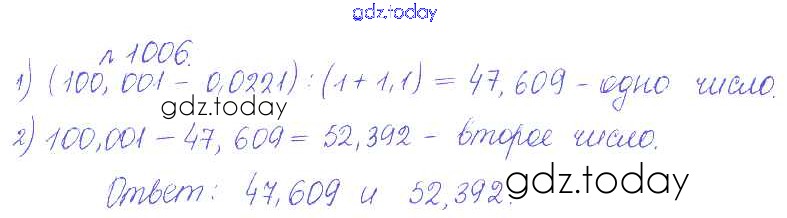 gdz.today
№ 1006.
1) (100,001 - 0,0221) : (1 + 1,1) = 47,609 - одно число.
gdz.today
2) 100,001 - 47,609 = 52,392 - второе число.
Ответ: 47,609 и 52,392.
gdz.today